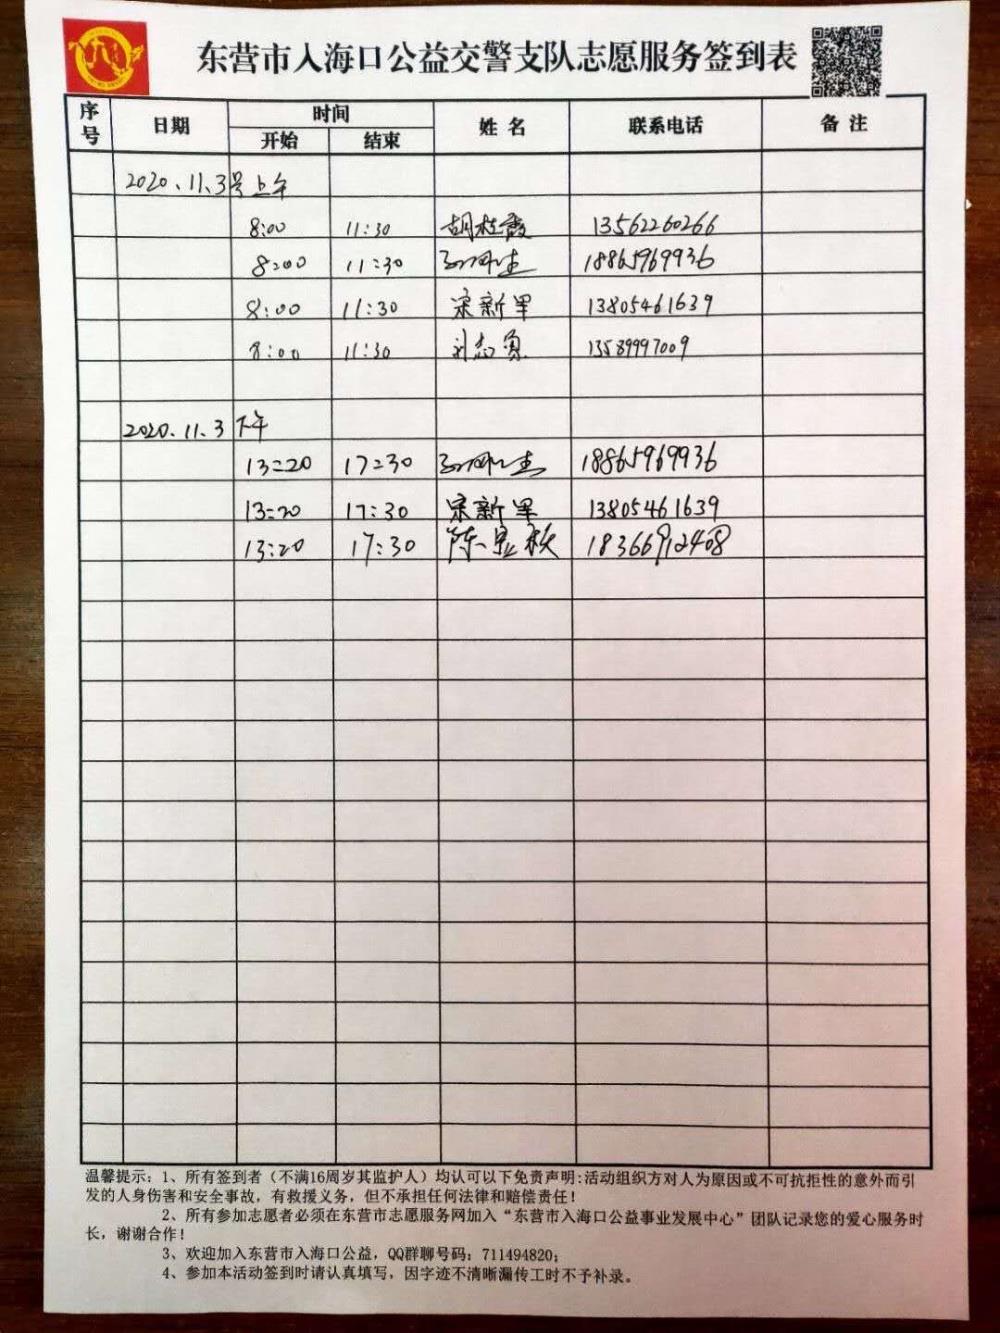 东营市入海口公益交警支队志愿服务签到表
序号 日期 时间 姓名 联系电话 备注
开始 结束
2020.11.3号上午
8:00 11:30 胡桂霞 13562260266
8:00 11:30 18865969936
8:00 11:30 宋新军 13805461639
8:00 11:30 刘志勇 13589997009
2020.11.3 下午
13:20 17:30 18865969936
13:20 17:30 宋新军 13805461639
13:20 17:30 陈 18366912408
温馨提示：1、所有签到者（不满16周岁其监护人）均认可以下免责声明：活动组织方对人为原因或不可抗拒性的意外而引
发的人身伤害和安全事故，有救援义务，但不承担任何法律和赔偿责任！
2、所有参加志愿者必须在东营市志愿服务网加入“东营市入海口公益事业发展中心”团队记录您的爱心服务时
长，谢谢合作！
3、欢迎加入东营市入海口公益，QQ群聊号码：711494820；
4、参加本活动签到时请认真填写，因字迹不清晰漏传工时不予补录。